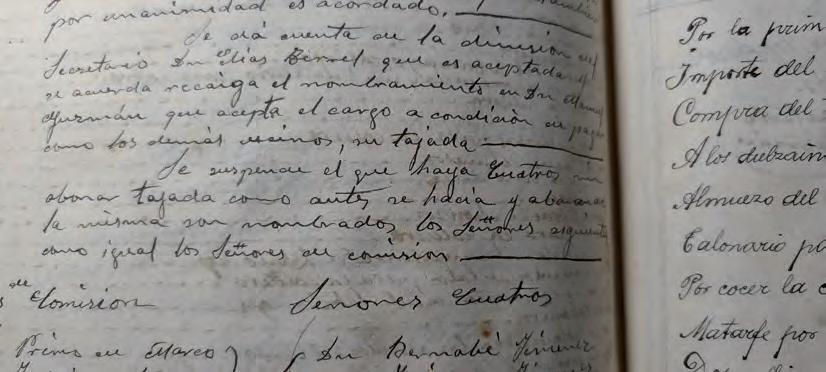 por unanimidad es acordado.
Se dá cuenta de la dimisión del
Secretario Dn Elías Bernel que es aceptada y
se acuerda recaiga el nombramiento en Dn Manuel
Guzmán que acepta el cargo a condición de pagar
como los demás vecinos, su tajada
Se suspende el que haya Cuatros sin
abonar tajada como antes se hacía y abonando
la misma son nombrados los Señores siguientes
como igual los Señores de comisión
Comision Señores Cuatros
Primo de Marco Dn Bernabé Jimenez
Por la prim
Importe del
Compra del
A los dulzain
Almuerzo del
Talonario pa
Por cocer la c
Matarfe por